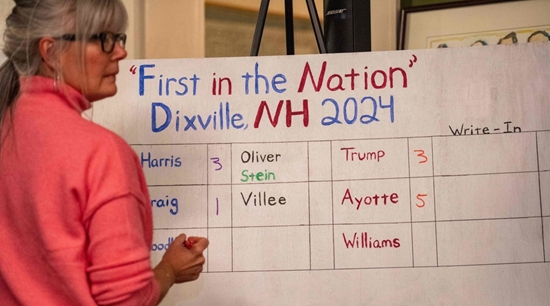 "First in the Nation"
Dixville, NH 2024
Write-In
Harris 3 Oliver Trump 3
Stein
raig 1 Villee Ayotte 5
Williams